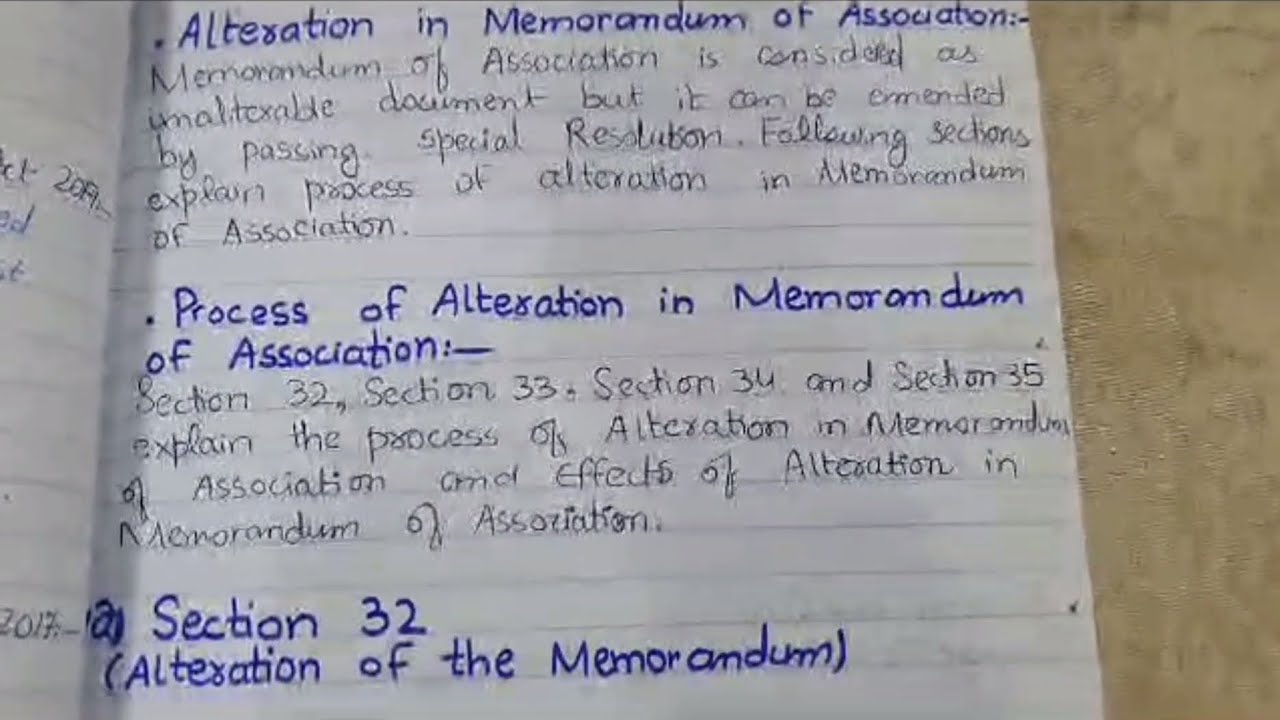 . Alteration in Memorandum of Association:-
Memorandum of Association is considered as
unalterable document but it can be emended
by passing special Resolution. Following sections
explain process of alteration in Memorandum
of Association.
ct 2017:-
ed
. Process of Alteration in Memorandum
of Association:-
Section 32, Section 33, Section 34 and Section 35
explain the process of Alteration in Memorandum
of Association and Effects of Alteration in
Memorandum of Association.
2017:- (a) Section 32
(Alteration of the Memorandum)